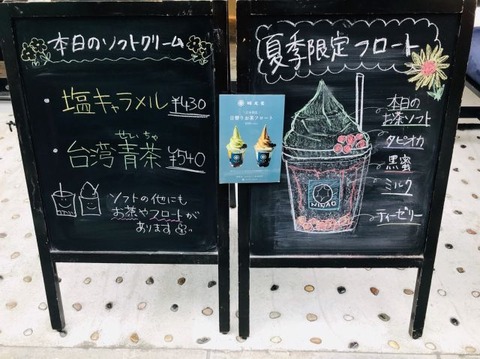 本日のソフトクリーム
・塩キャラメル ¥430
せいちゃ
・台湾青茶 ¥540
ソフトの他にも
お茶やフロートが
あります
夏季限定フロート
本日の
お茶ソフト
タピオカ
黒蜜
ミルク
ティーゼリー